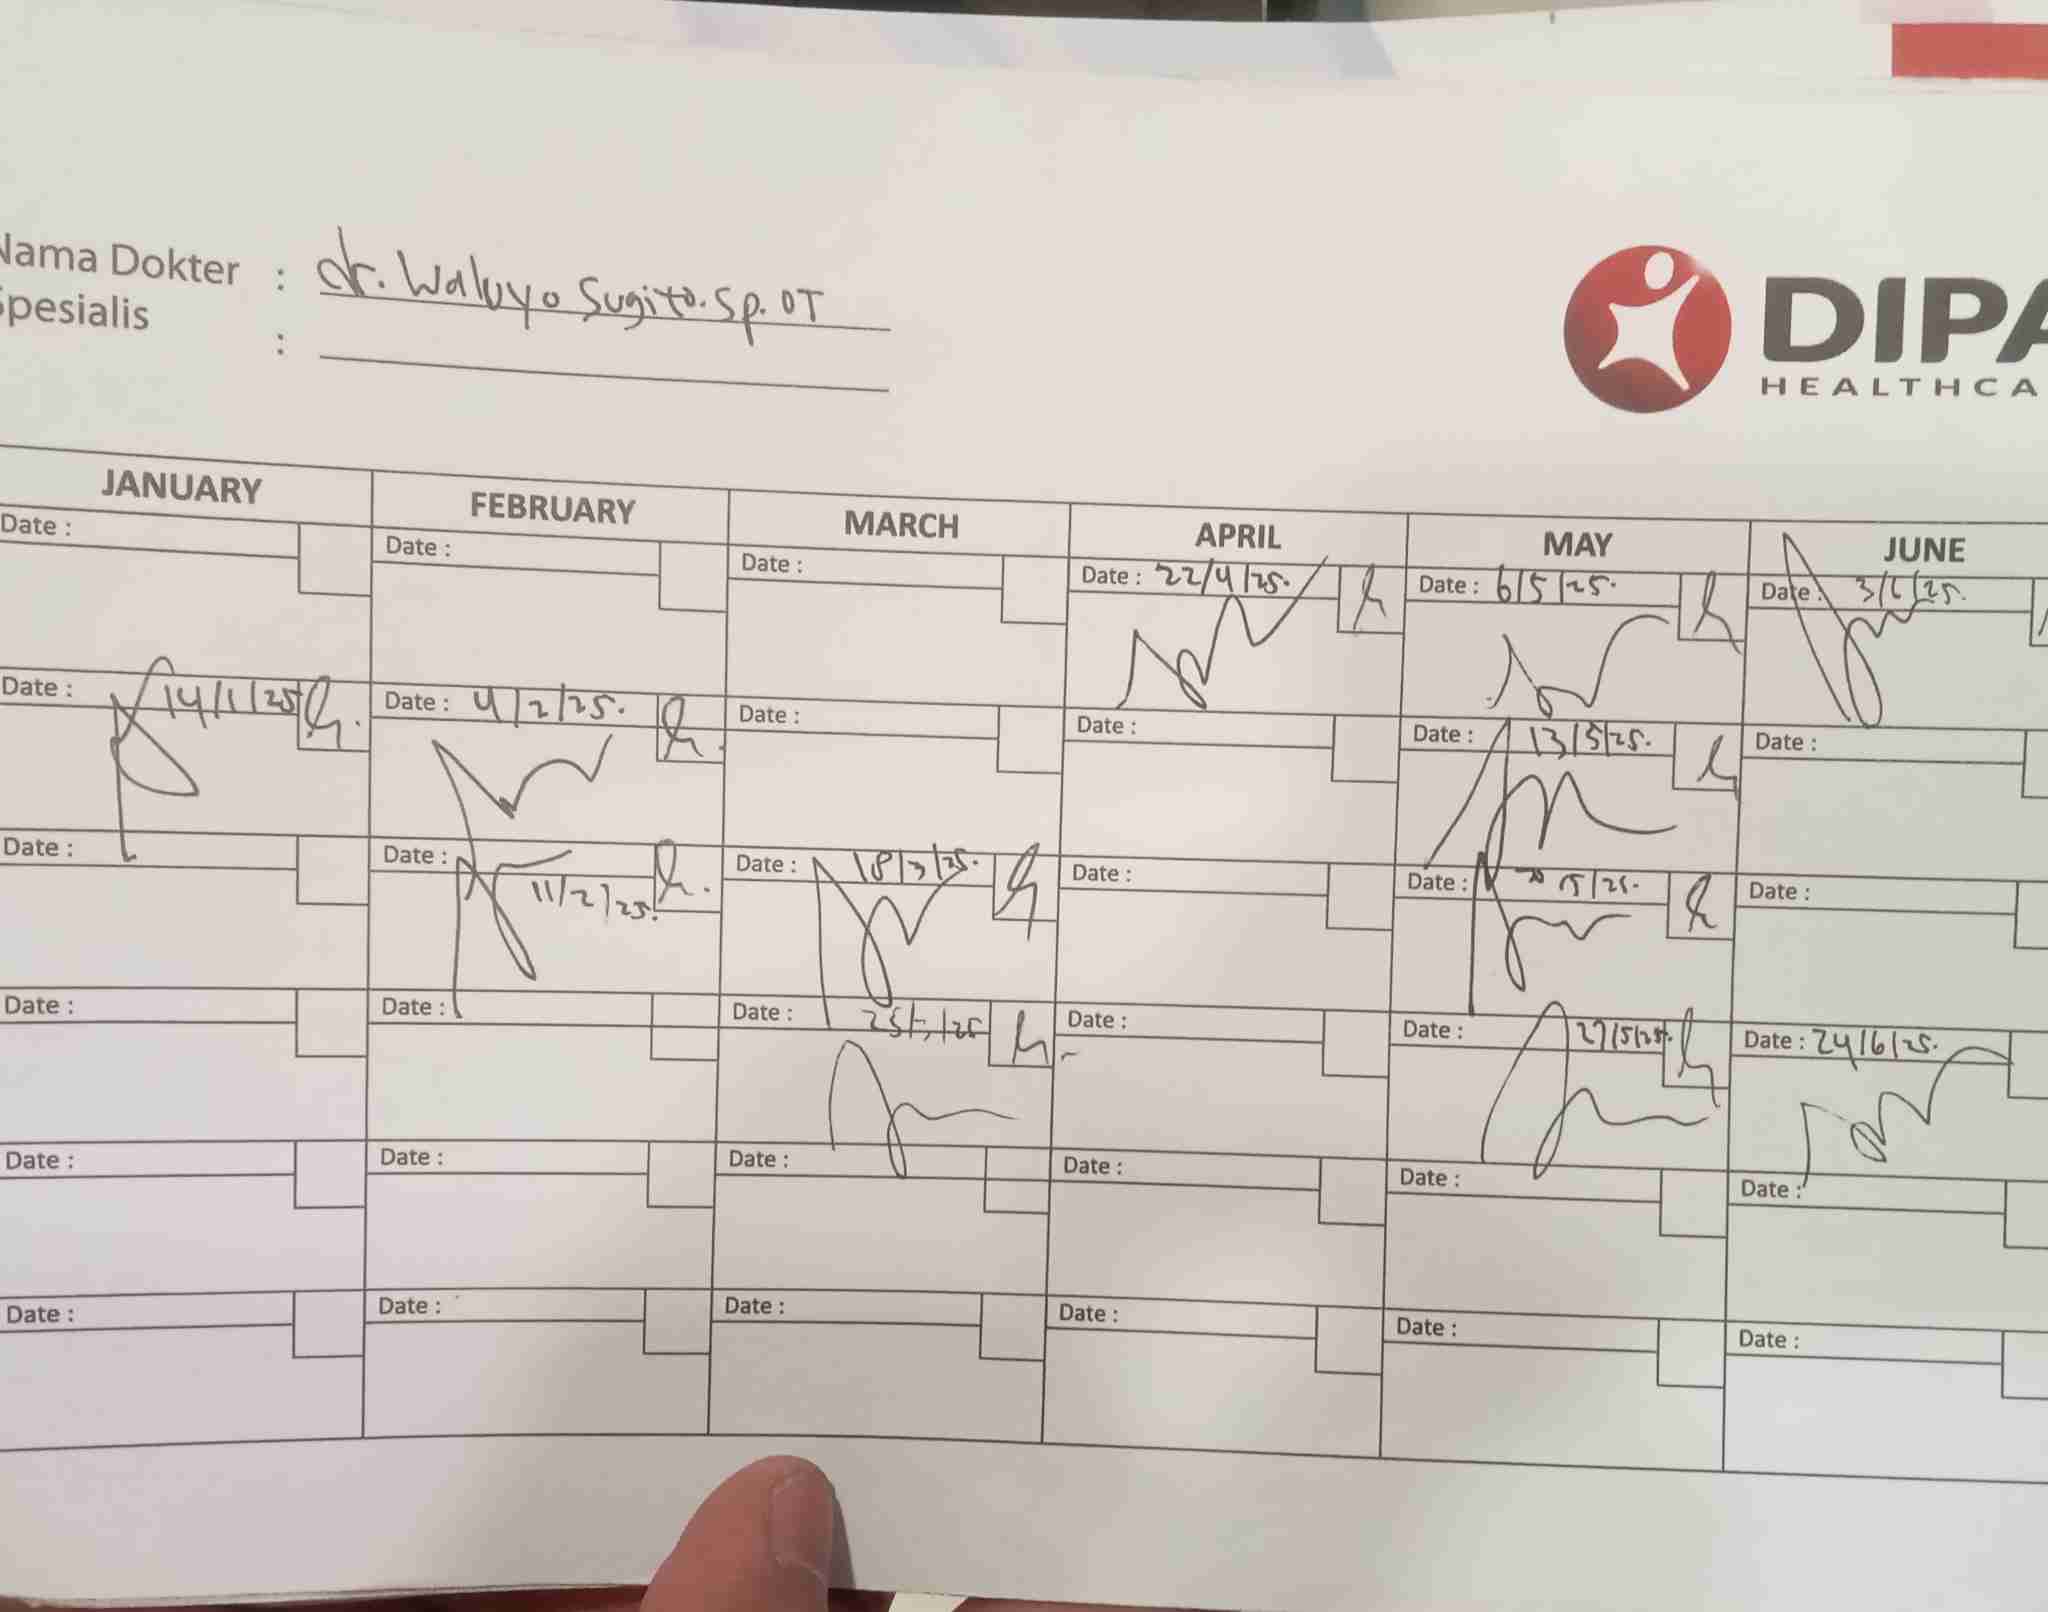 Nama Dokter : dr. Waluyo Sugito. Sp. OT
Spesialis :
DIPA
HEALTHCA
JANUARY FEBRUARY MARCH APRIL MAY JUNE
Date : Date : Date : Date : 22/4/25. Date : 6/5/25. Date : 3/6/25.
Date : 14/1/25 Date : 4/2/25. Date : Date : Date : 13/5/25. Date :
Date : Date : 11/2/25. Date : 18/3/25. Date : Date : 20/5/25. Date :
Date : Date : Date : 25/3/25 Date : Date : 27/5/25. Date : 24/6/25.
Date : Date : Date : Date : Date : Date :
Date : Date : Date : Date : Date : Date :